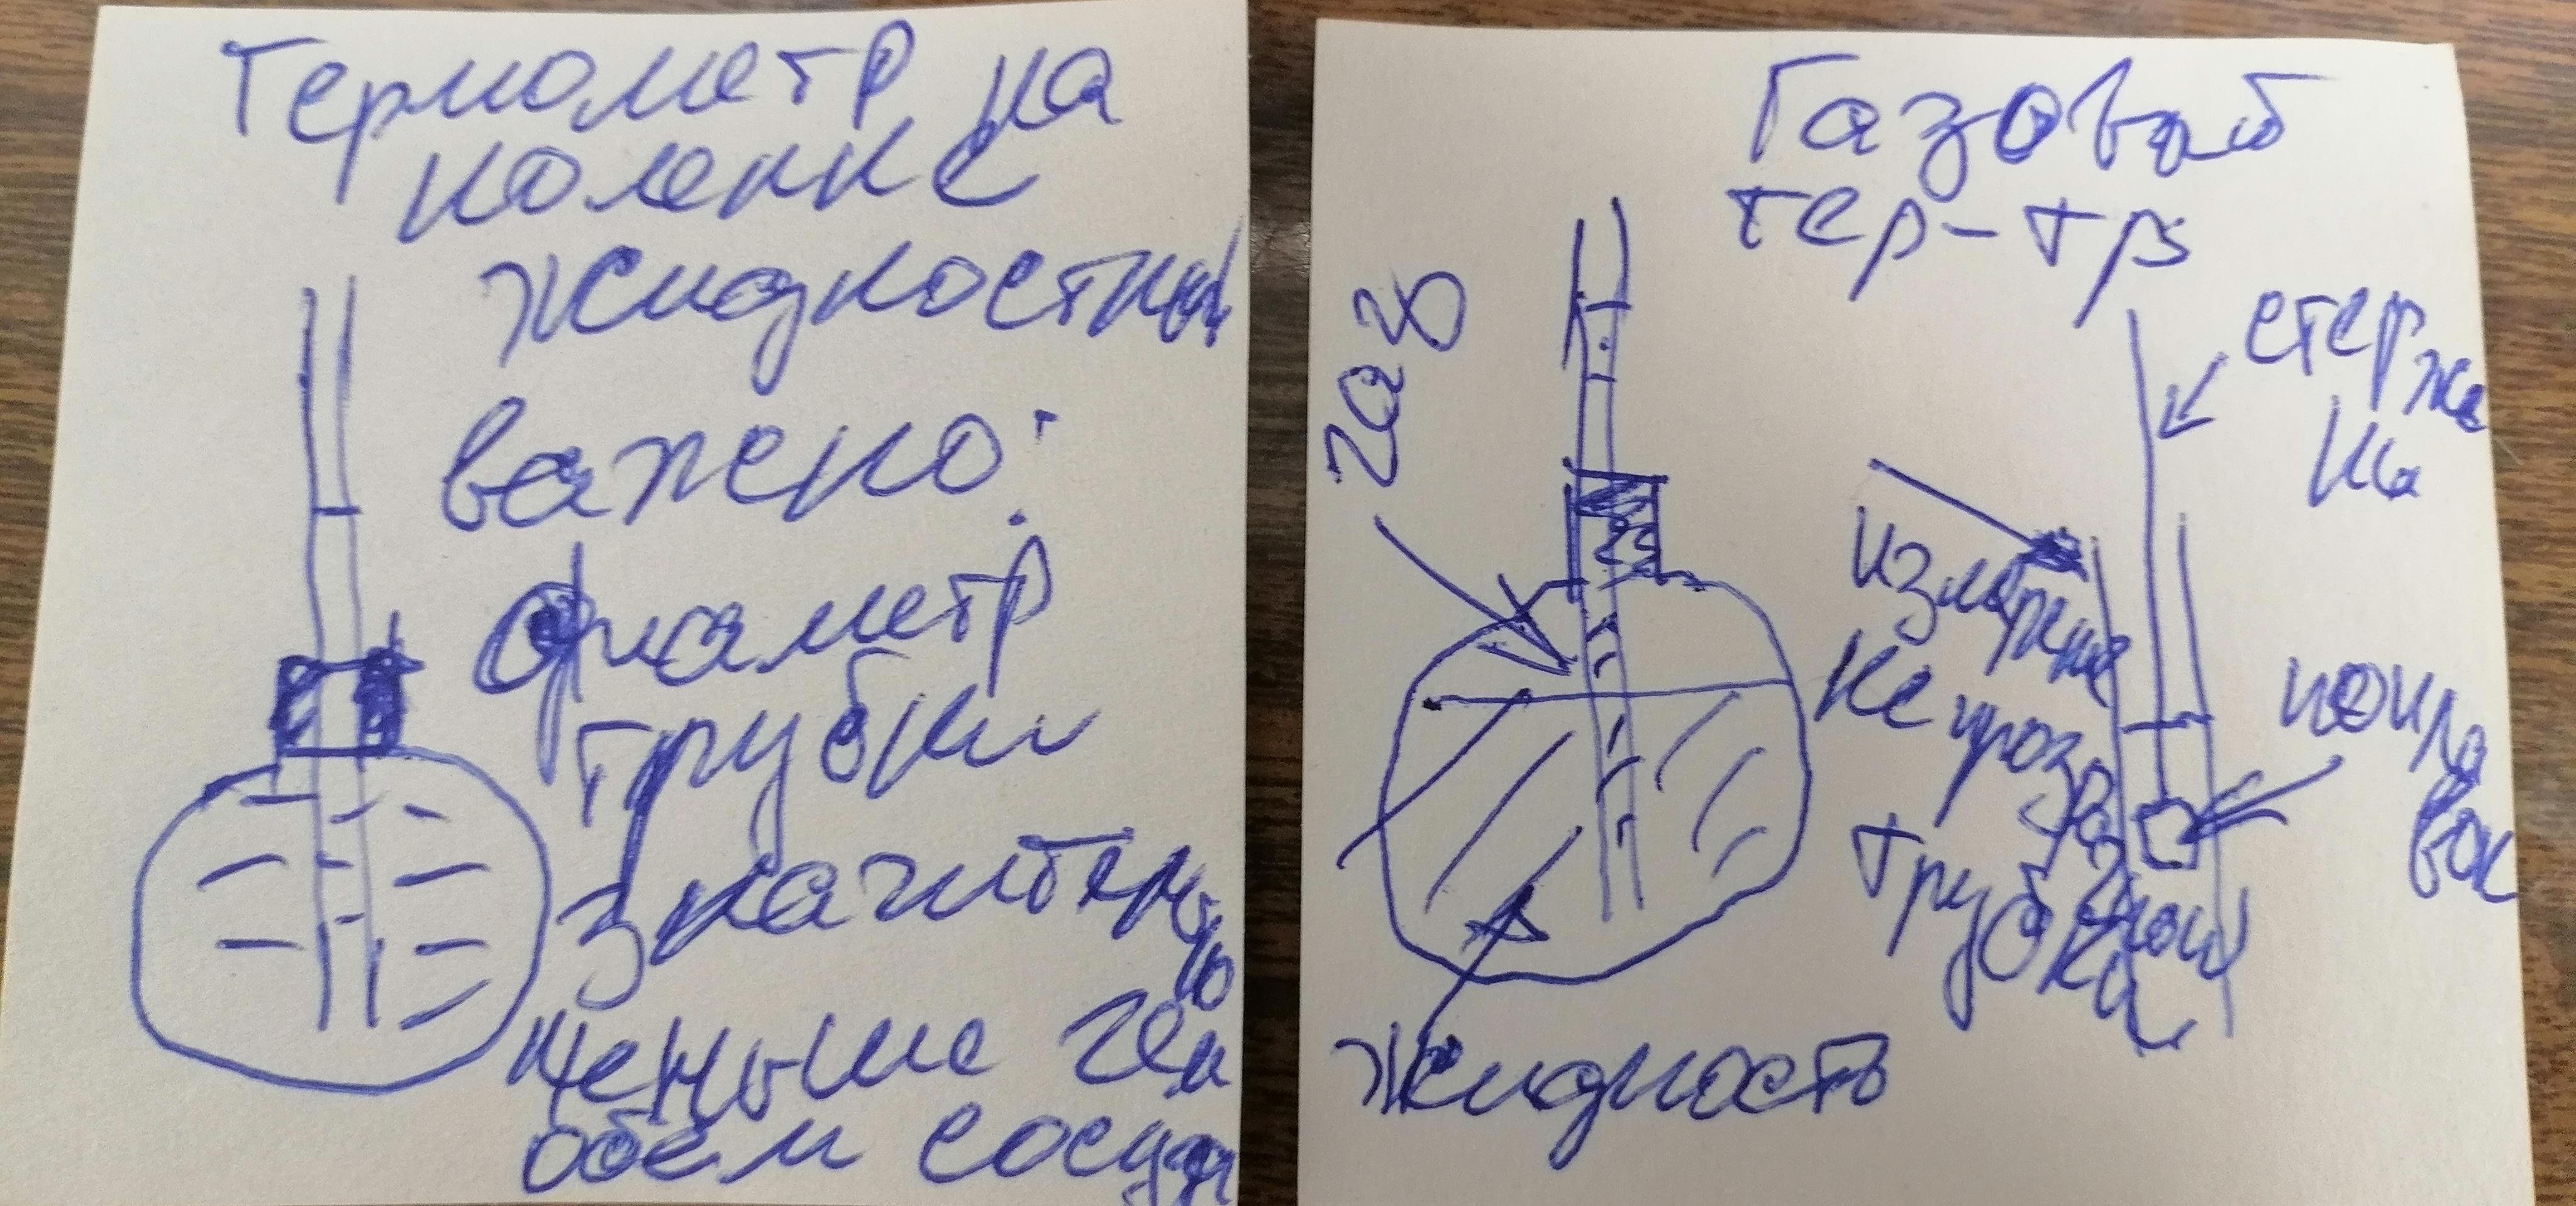 Термометр на
коленке
жидкостный
важно:
диаметр
трубки
значительно
меньше чем
обем сосуда
Газовый
тер-тр
газ
стержень
поплавок
трубка
жидкость